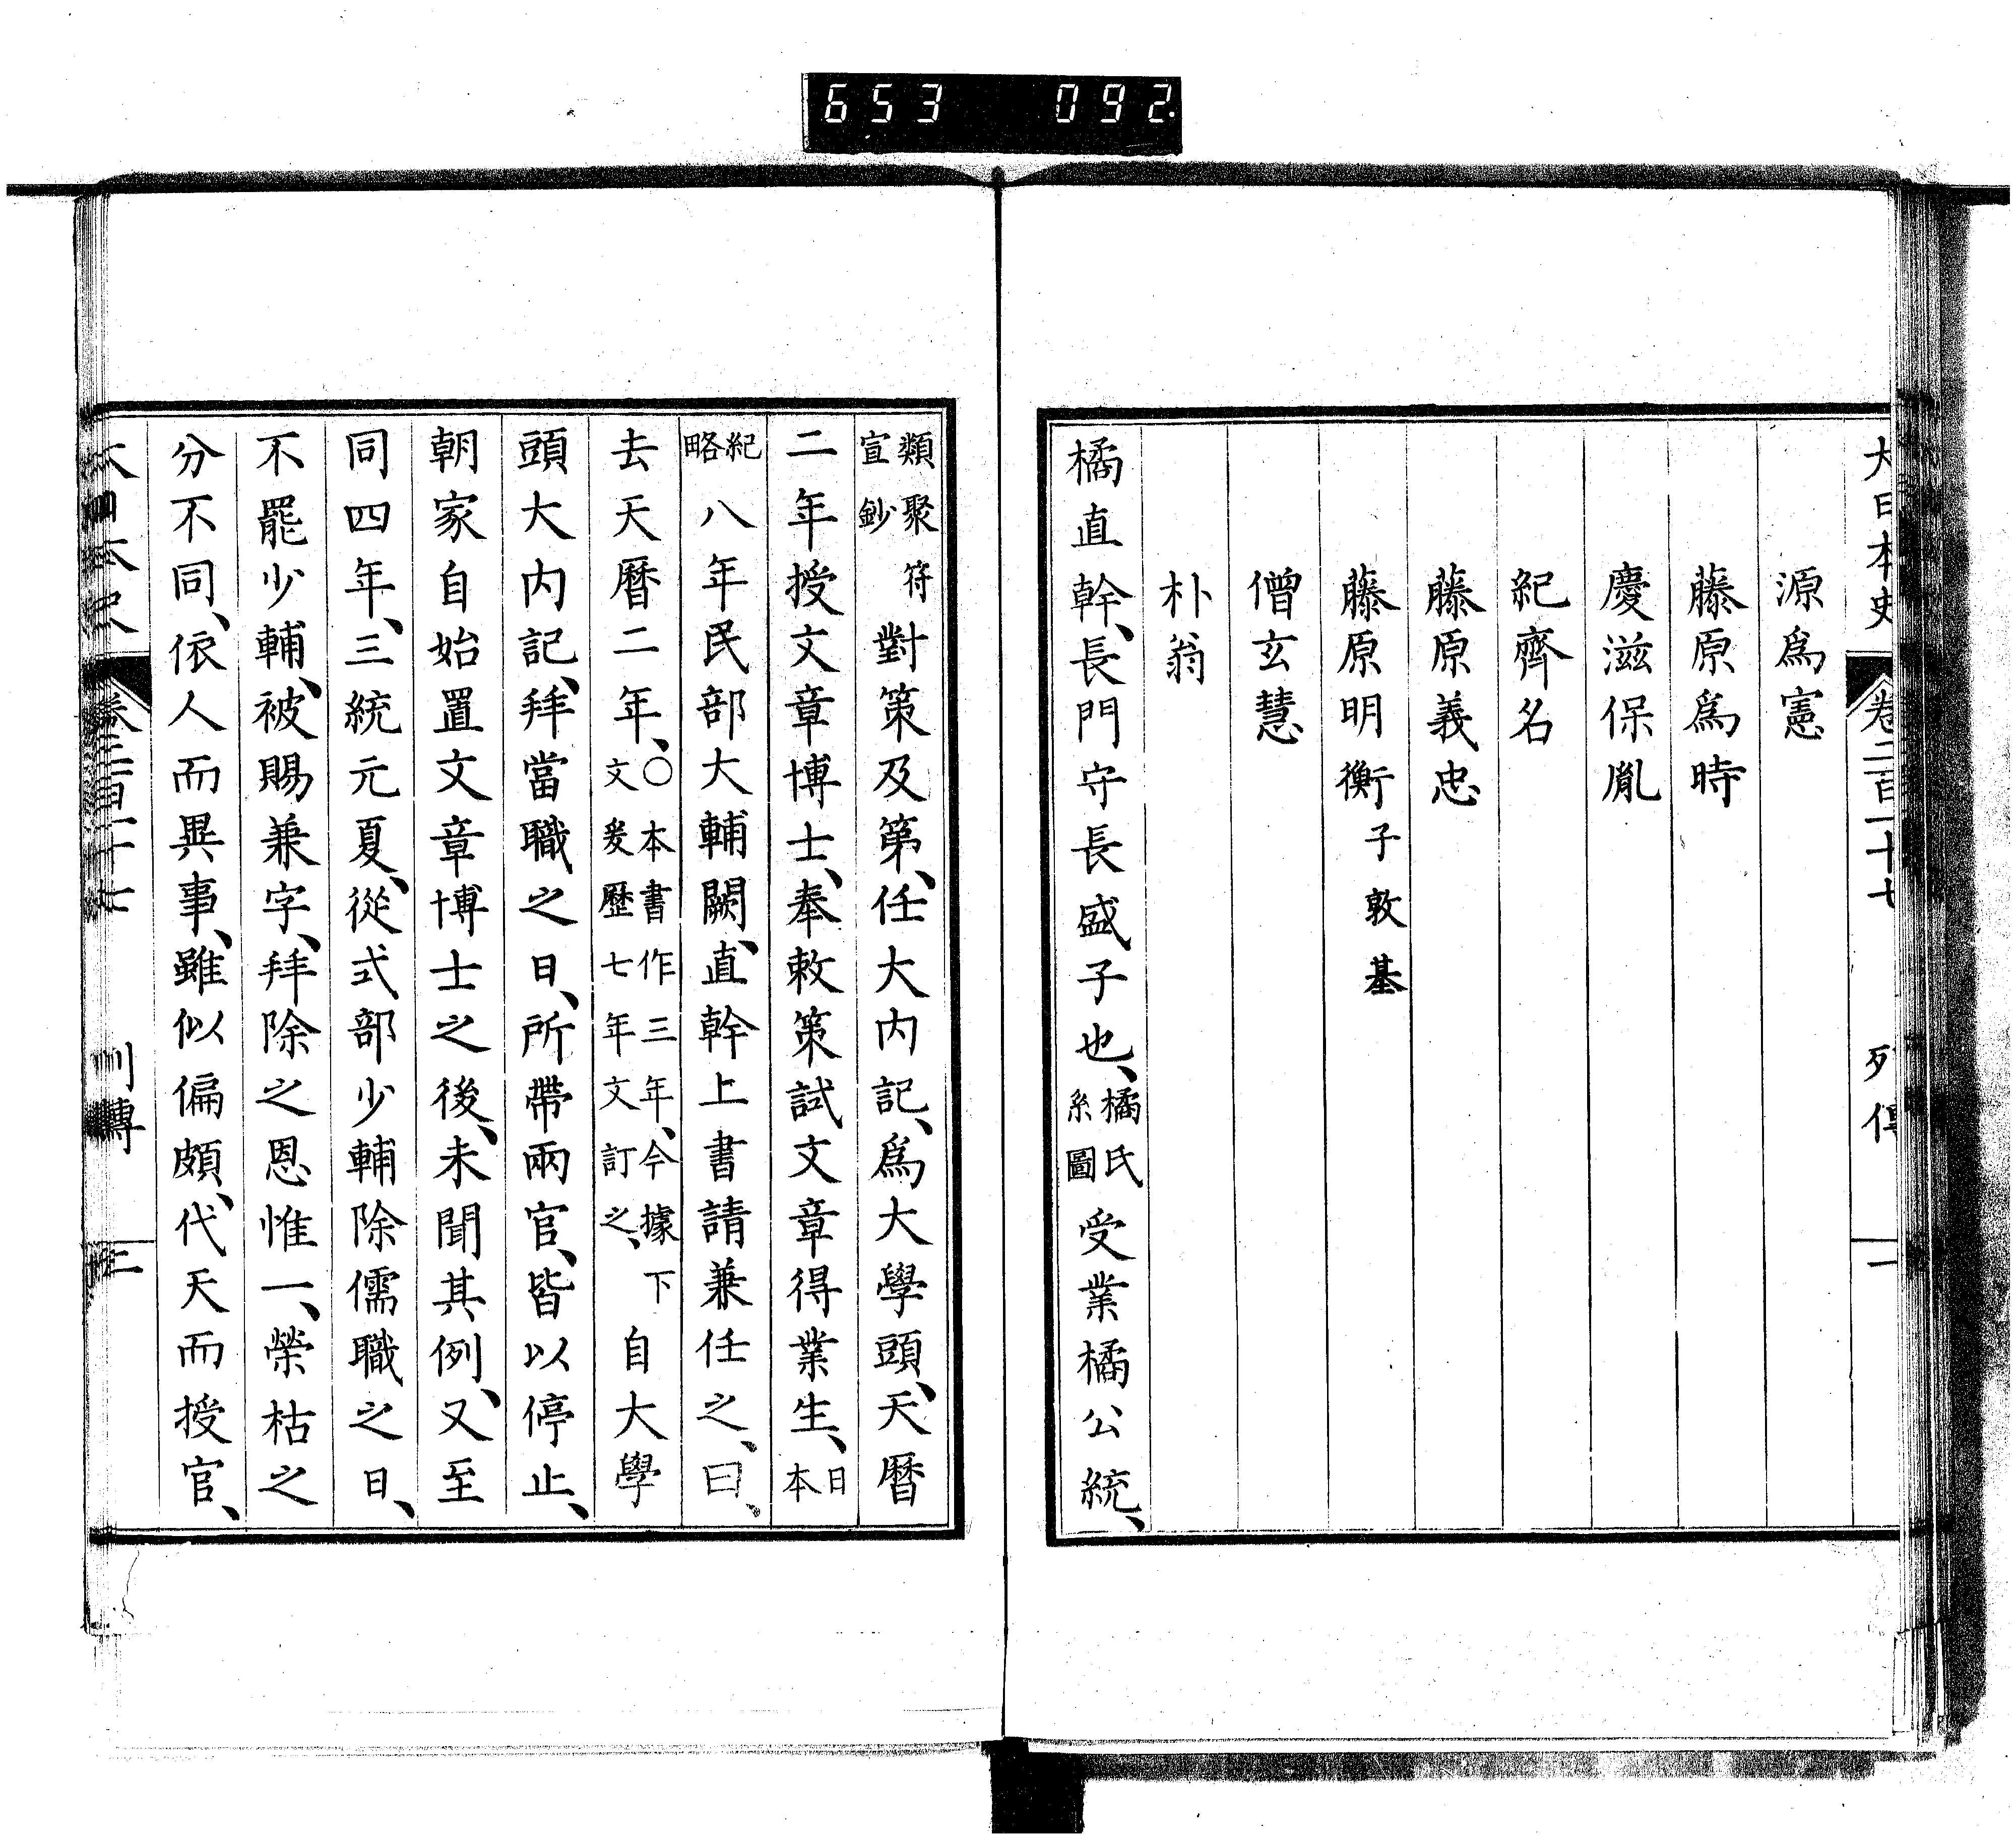 653 092
大日本史 卷二百一十七 列傳 一
源爲憲
藤原爲時
慶滋保胤
紀齊名
藤原義忠
藤原明衡 子敦基
僧玄慧
朴翁
橘直幹、長門守長盛子也、橘氏系圖受業橘公統、
類聚符宣鈔對策及第、任大内記、爲大學頭、天曆
二年授文章博士、奉敕策試文章得業生、日本
紀略八年民部大輔闕、直幹上書請兼任之、曰、
去天曆二年、〇本書作三年、今據下文爰歷七年文訂之、自大學
頭大内記、拜當職之日、所帶兩官、皆以停止、
朝家自始置文章博士之後、未聞其例、又至
同四年、三統元夏、從式部少輔除儒職之日、
不罷少輔、被賜兼字、拜除之恩惟一、榮枯之
分不同、依人而異事、雖似偏頗、代天而授官、
大日本史 卷二百一十七 列傳